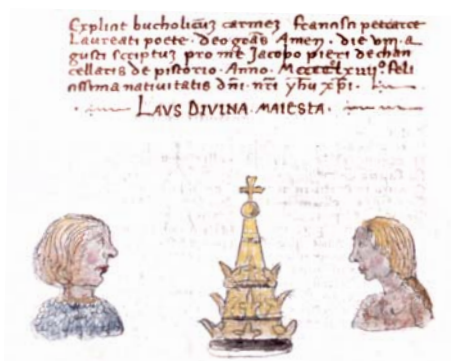 Explicit bucholicuȝ carmeȝ francisci petrarce
Laureati poete · deo gr̃as · Amen · die viii · a
gusti scriptuȝ pro me Jacopo pieri de chan
cellariis de pistorio · Anno · Mcccclxiiiiº · feli
cissima nativitatis dñi · nr̃i yhu xp̃i ·
LAVS DIVINA MAIESTA ·